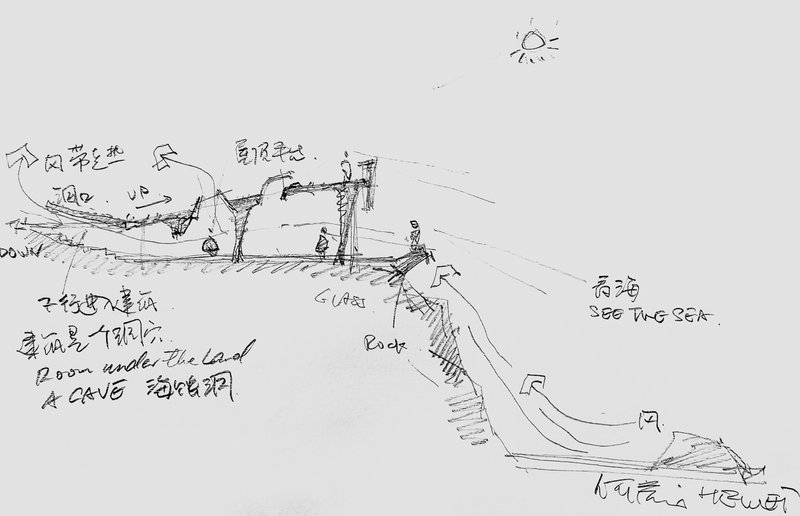 风带走热
屋顶平台.
洞口. UP
DOWN
GLASS
下行进入建筑.
建筑是个洞穴.
Room under the Land
A CAVE 海蚀洞
ROCK
看海
SEE THE SEA.
风.